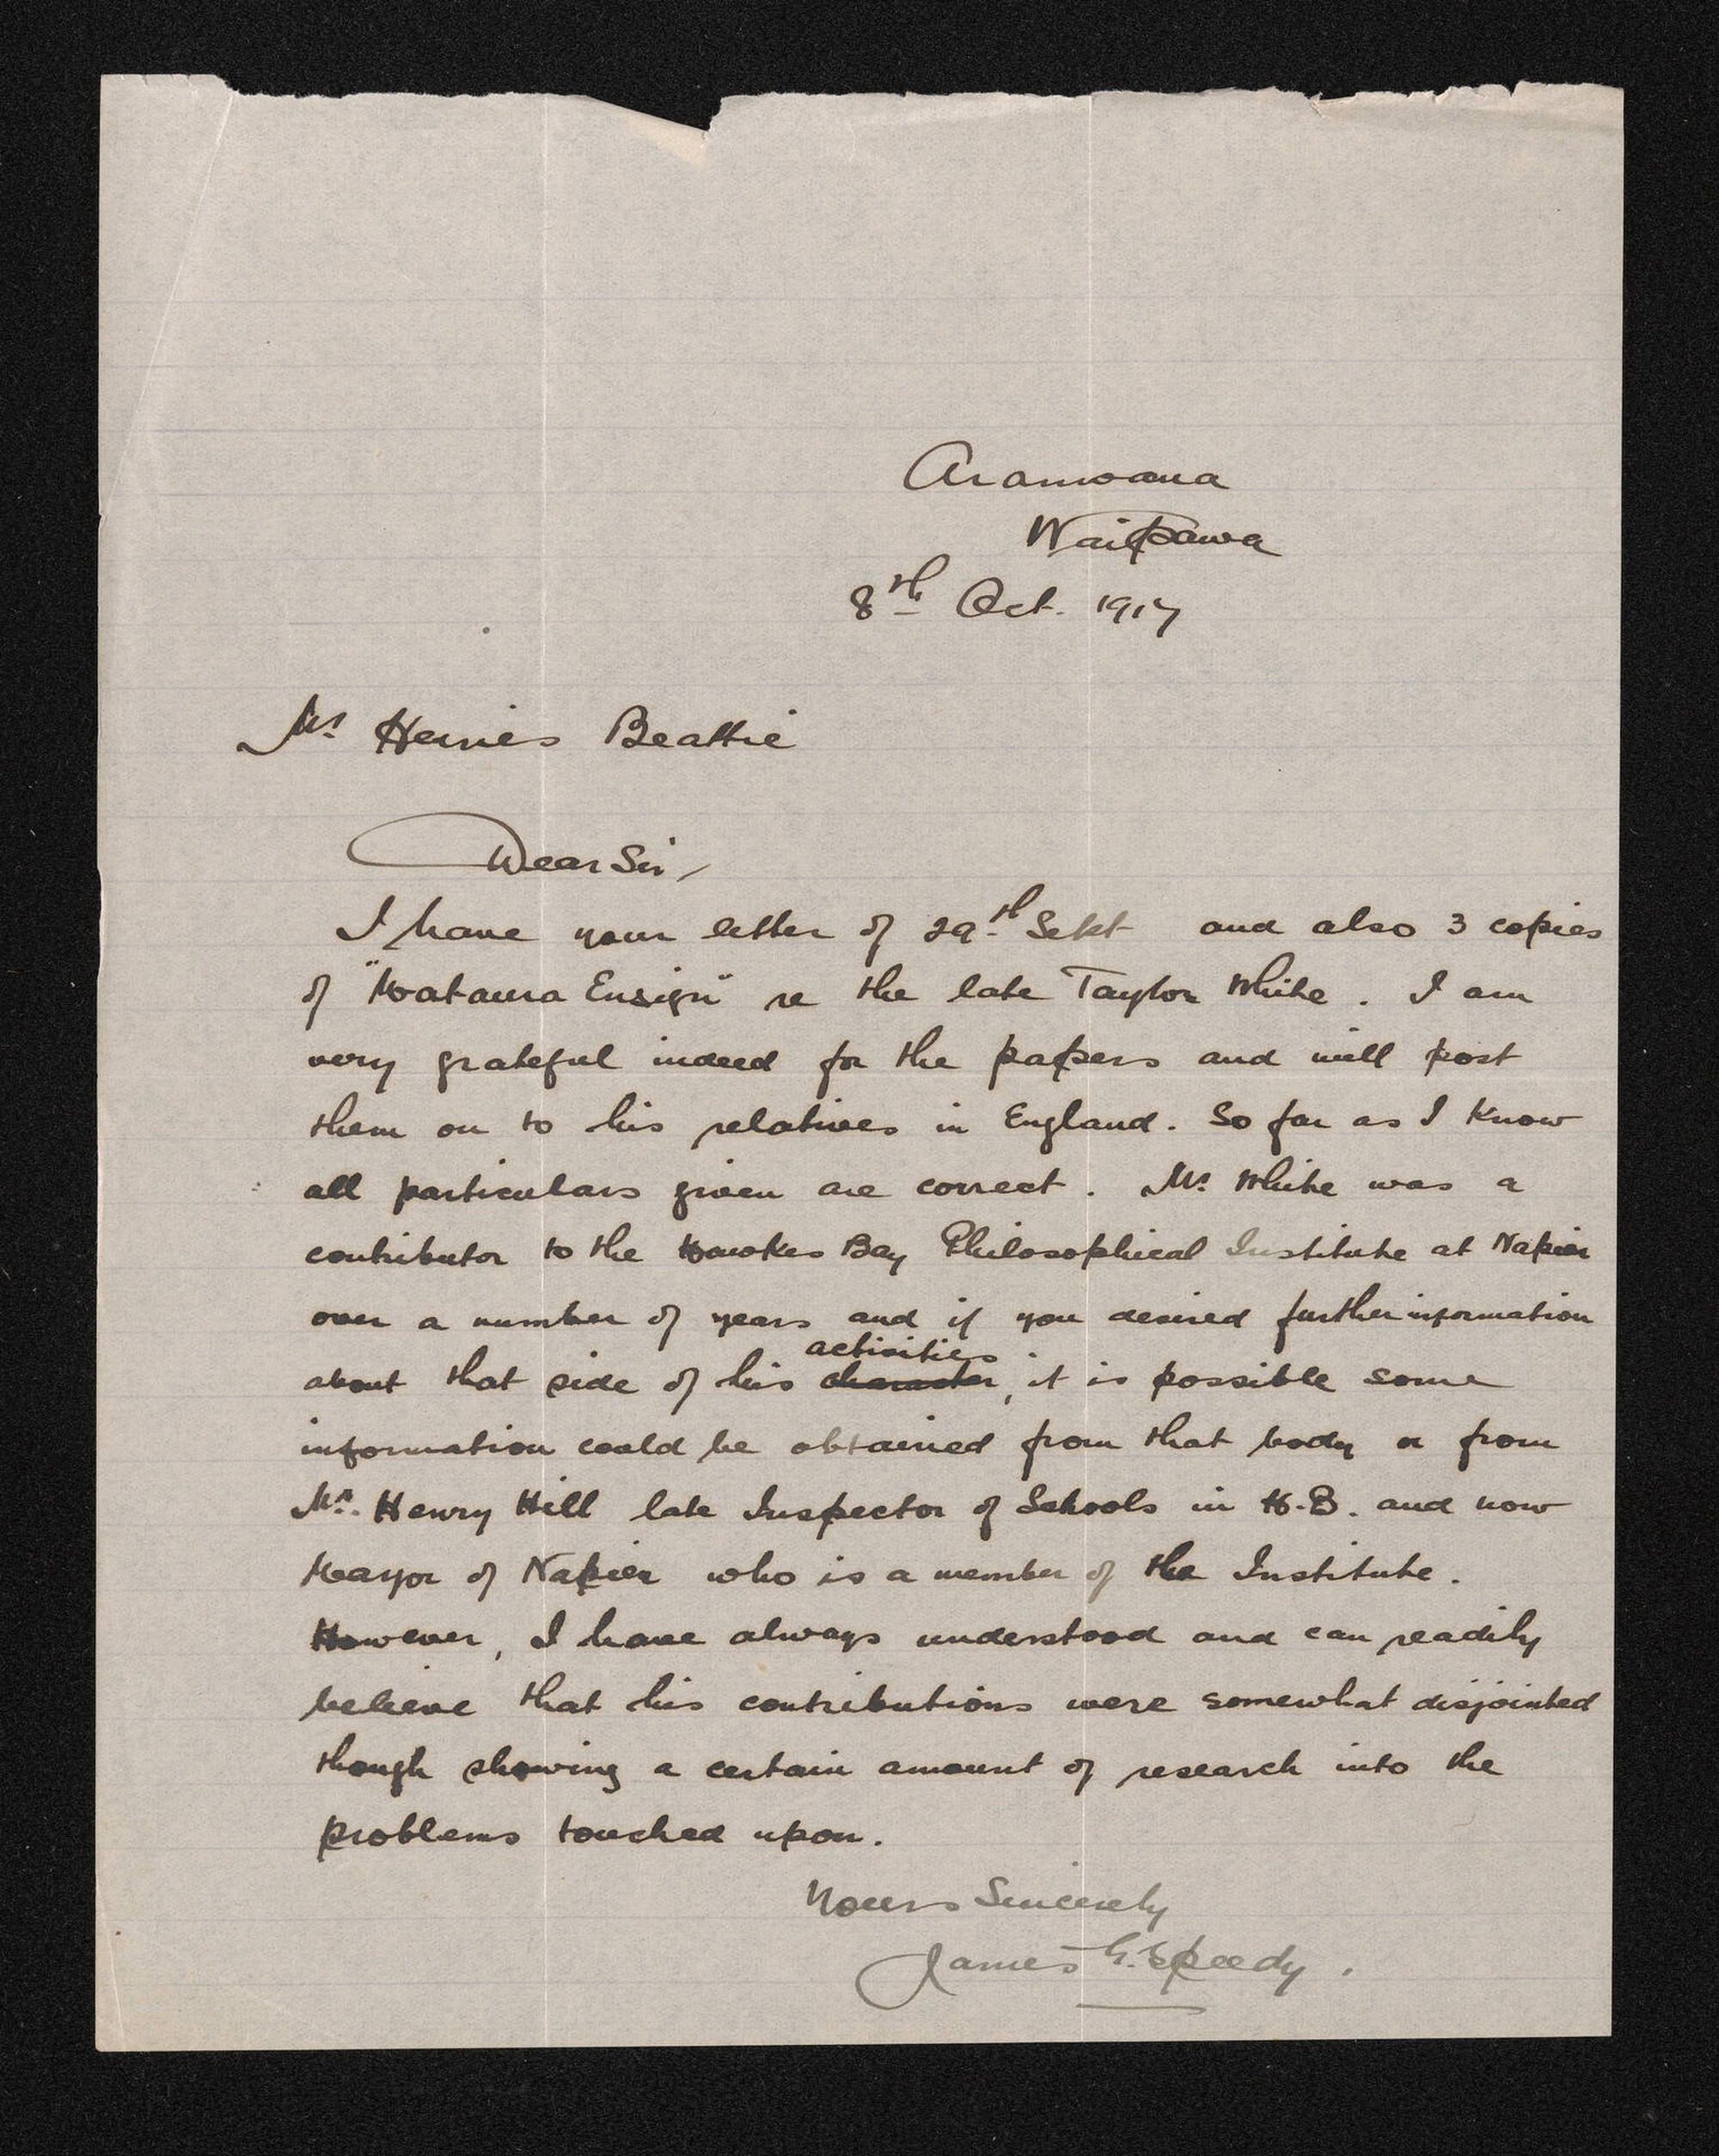 Aramoana
Waipawa
8th Oct. 1917
Mr Herries Beattie
Dear Sir,
I have your letter of 29th Sept and also 3 copies
of "Mataura Ensign" re the late Taylor White. I am
very grateful indeed for the papers and will post
them on to his relatives in England. So far as I know
all particulars given are correct. Mr White was a
contributor to the Hawkes Bay Philosophical Institute at Napier
over a number of years and if you desired further information
about that side of his character activities, it is possible some
information could be obtained from that body or from
Mr. Henry Hill late Inspector of Schools in H.B. and now
Mayor of Napier who is a member of the Institute.
However, I have always understood and can readily
believe that his contributions were somewhat disjointed
though showing a certain amount of research into the
problems touched upon.
Yours Sincerely
James G. Speedy.